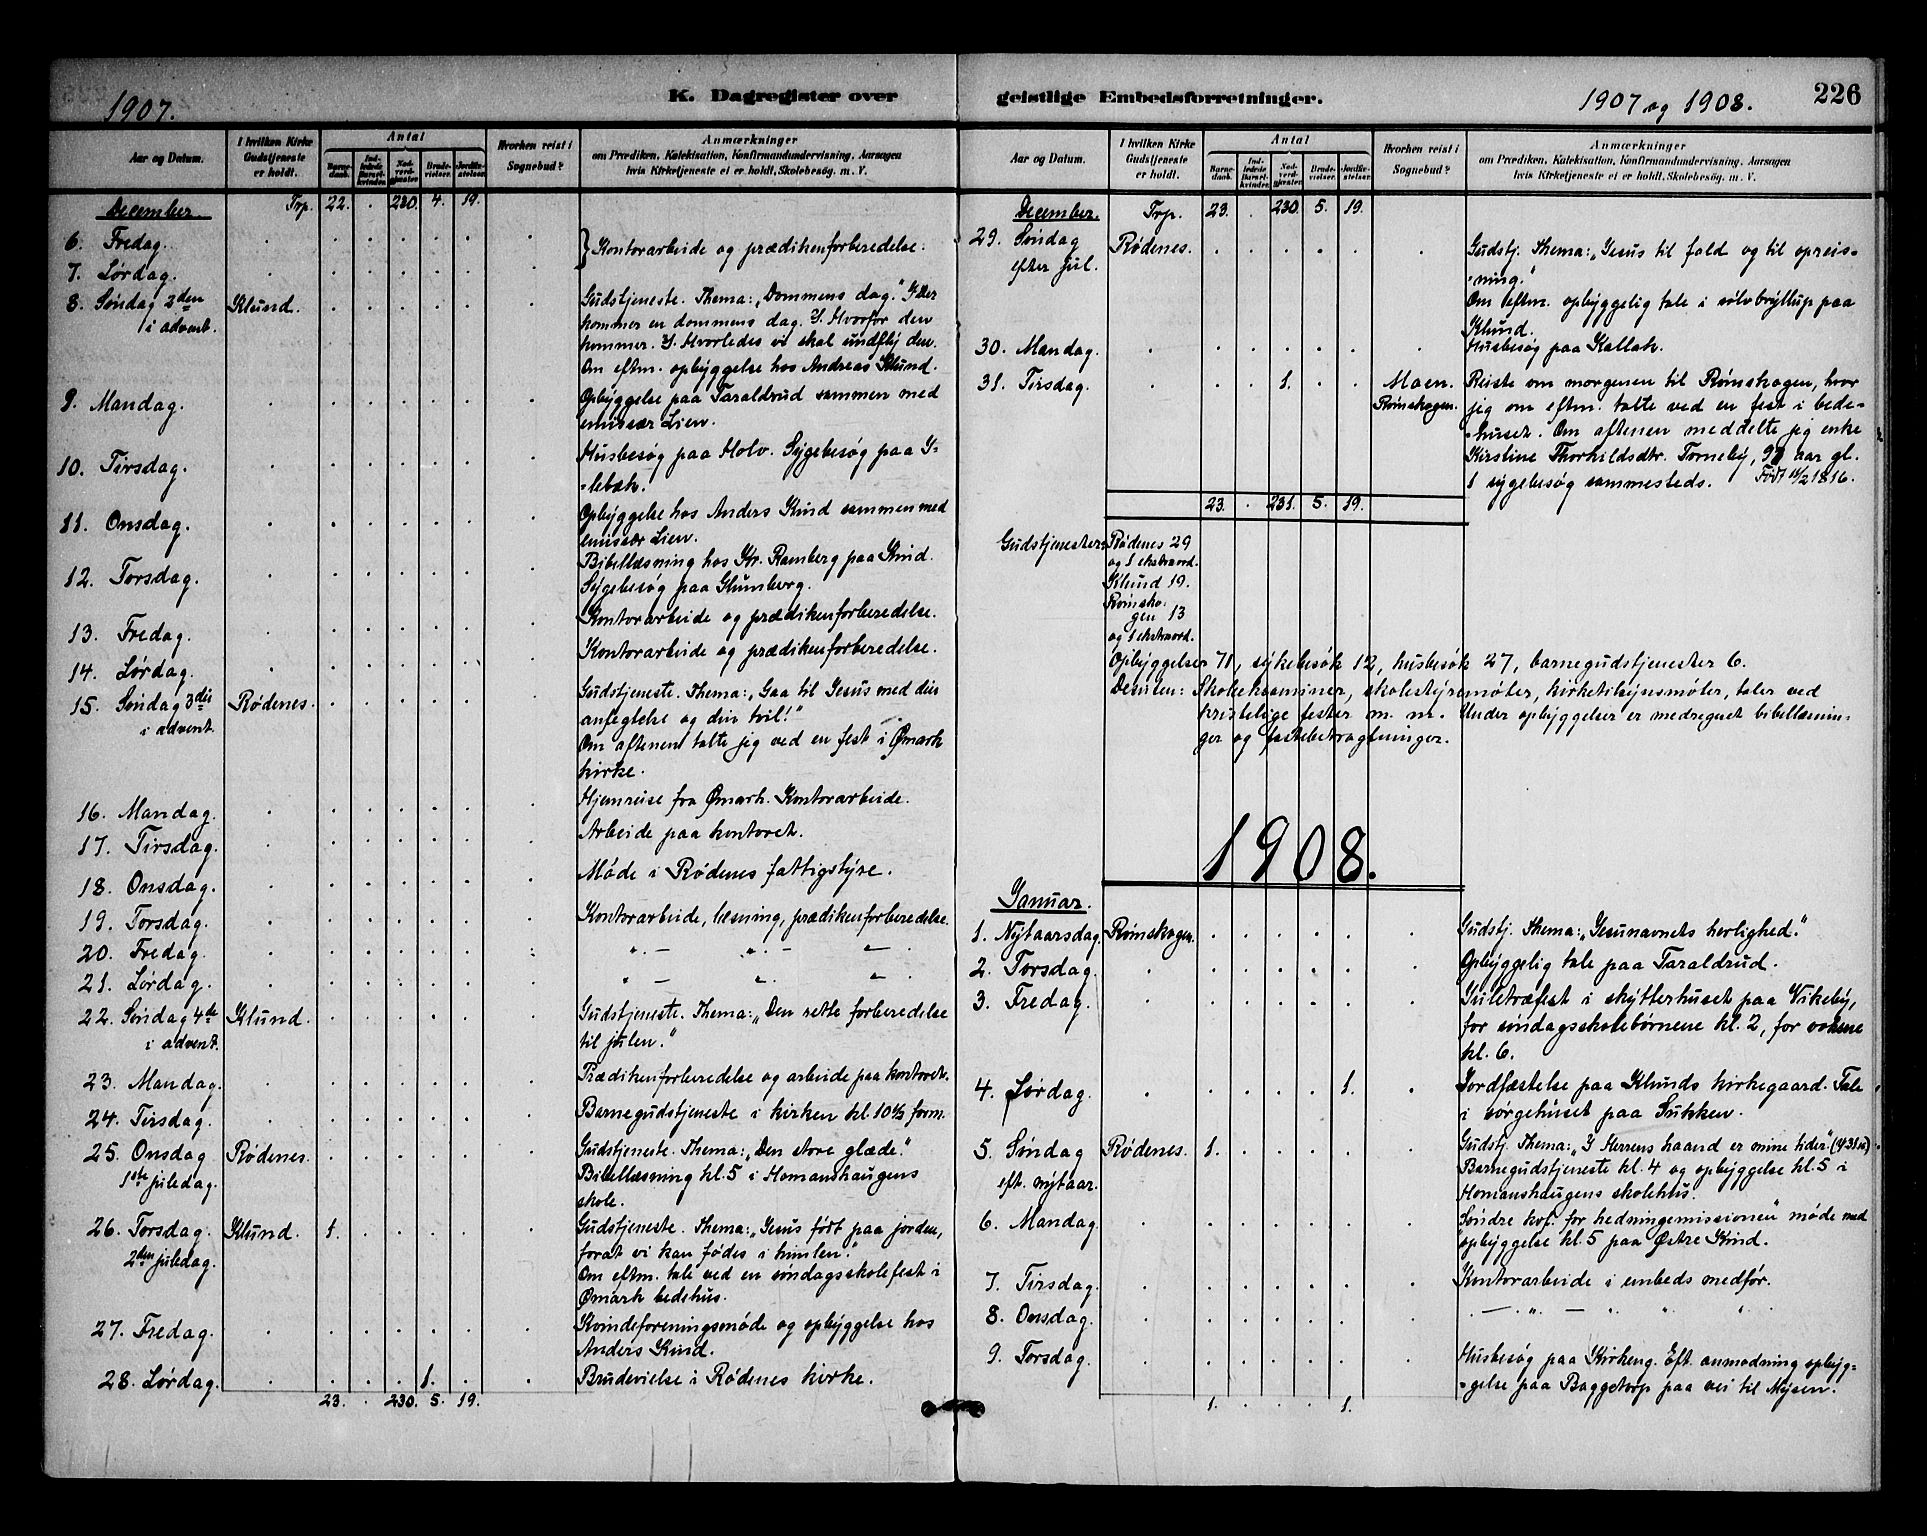 1907.
K. Dagregister over
Aar og Datum.
I hvilken Kirke Gudstjeneste er holdt.
Antal
Barne-daab.
Ind-ledede Barsel-kvinder.
Nad-verd-gjæster.
Brude-vielser.
Jordfæ-stelser.
Hvorhen reist i Sognebud?
Anmærkninger
om Prædiken, Katekisation, Konfirmandundervisning, Aarsagen
hvis Kirketjeneste ei er holdt, Skolebesøg. m. V.
December. Trp. 22. . 230. 4. 19.
6. Fredag. } Kontorarbeide og prædikenforberedelse.
7. Lørdag.
8. Søndag 2den Klund. Gudstjeneste. Thema: "Dommens dag." I Der
i advent. kommer en dommens dag. II Hvorfor den
kommer. III Hvorledes vi skal undfly den.
Om eftm. opbyggelse hos Andreas Klund.
9. Mandag. Opbyggelse paa Taraldrud sammen med
emissær Lien.
10. Tirsdag. Husbesøg paa Holv. Sygebesøg paa
11. Onsdag. Opbyggelse hos Anders Kind sammen med
emissær Lien.
12. Torsdag. Bibellæsning hos Kr. Ramberg paa Kind.
Sygebesøg paa Glumberg.
13. Fredag. Kontorarbeide og prædikenforberedelse.
14. Lørdag. Kontorarbeide og prædikenforberedelse.
15. Søndag 3die Rødenes. Gudstjeneste. Thema: "Gaa til Jesus med din
i advent. anfegtelse og din tvil!"
Om aftenen talte jeg ved en fest i Ømark
kirke.
16. Mandag. Hjemreise fra Ømark. Kontorarbeide.
17. Tirsdag. Arbeide paa kontoret.
18. Onsdag. Møde i Rødenes fattigstyre.
19. Torsdag. Kontorarbeide, læsning, prædikenforberedelse.
20. Fredag. " — " — " —
21. Lørdag. " — " "
22. Søndag 4de Klund. Gudstjeneste. Thema: "Den rette forberedelse
i advent. til julen."
23. Mandag. Prædikenforberedelse og arbeide paa kontoret.
24. Tirsdag. Barnegudstjeneste i kirken kl. 10½ form.
25. Onsdag Rødenes. Gudstjeneste. Thema: "Den store glæde."
1ste juledag. Bibellæsning kl. 5 i Homanshaugens
skole.
26. Torsdag. Klund. 1. Gudstjeneste. Thema: "Jesus født paa jorden,
2den juledag. forat vi kan fødes i himlen."
Om eftm. tale ved en søndagsskolefest i
Ømark bedehus.
27. Fredag. Kvindeforeningsmøde og opbyggelse hos
Anders Kind.
28. Lørdag. 1. Brudevielse i Rødenes kirke.
23. . 230. 5. 19.
geistlige Embedsforretninger.
1907 og 1908.
226
Aar og Datum.
I hvilken Kirke Gudstjeneste er holdt.
Antal
Barne-daab.
Ind-ledede Barsel-kvinder.
Nad-verd-gjæster.
Brude-vielser.
Jordfæ-stelser.
Hvorhen reist i Sognebud?
Anmærkninger
om Prædiken, Katekisation, Konfirmandundervisning, Aarsagen
hvis Kirketjeneste ei er holdt, Skolebesøg. m. V.
December. Trp. 23. . 230. 5. 19.
29. Søndag Rødenes. Gudstj. Thema: "Jesus til fald og til opreis-
efter jul. ning."
Om eftm. opbyggelig tale i sølvbryllup paa
Klund.
30. Mandag. Husbesøg paa Kallak.
31. Tirsdag. 1. Moen. Reiste om morgenen til Rømskogen, hvor
Rømskogen. jeg om eftm. talte ved en fest i bede-
huset. Om aftenen meddelte jeg enke
Kirstine Thorkildsdtr. Torneby, 92 aar gl.
1 sygebesøg sammesteds. Født 11/2 1816.
23. . 231. 5. 19.
Gudstjenester: Rødenes 29
og 1 ekstraord.
Klund 19.
Rømsko-
gen 13
og 1 ekstraord.
Opbyggelser 71, sykebesøk 12, husbesøk 27, barnegudstjenester 6.
Desuten: Skoleeksaminer, skolestyremøter, kirketilsynsmøter, taler ved
kristelige fester m. m. Under opbyggelser er medregnet bibellæsnin-
ger og fastebetragtninger.
1908.
Januar.
1. Nytaarsdag. Rømskogen. Gudstj. Thema: "Jesunavnets herlighed."
2. Torsdag. Opbyggelig tale paa Taraldrud.
3. Fredag. Juletræfest i skytterhuset paa Vikeby,
for søndagsskolebørnene kl. 2, for voksne
kl. 6.
4. Lørdag. 1. Jordfæstelse paa Klunds kirkegaard. Tale
i sørgehuset paa Sukken.
5. Søndag Rødenes. 1. Gudstj. Thema: "I Herrens haand er mine tider"
eft. nytaar. Barnegudstjeneste kl. 4 og opbyggelse kl. 5 i
Homanshaugens skolehus.
6. Mandag. Søndre kvf. for hedningemissionen" møde med
opbyggelse kl. 5 paa Østre Kind.
7. Tirsdag. Kontorarbeide i embeds medfør.
8. Onsdag. — " — " " "
9. Torsdag. Husbesøg paa Kirkeng. Eft. anmodning opbyg-
gelse paa Baggetorp paa vei til Mysen.
1. 1.